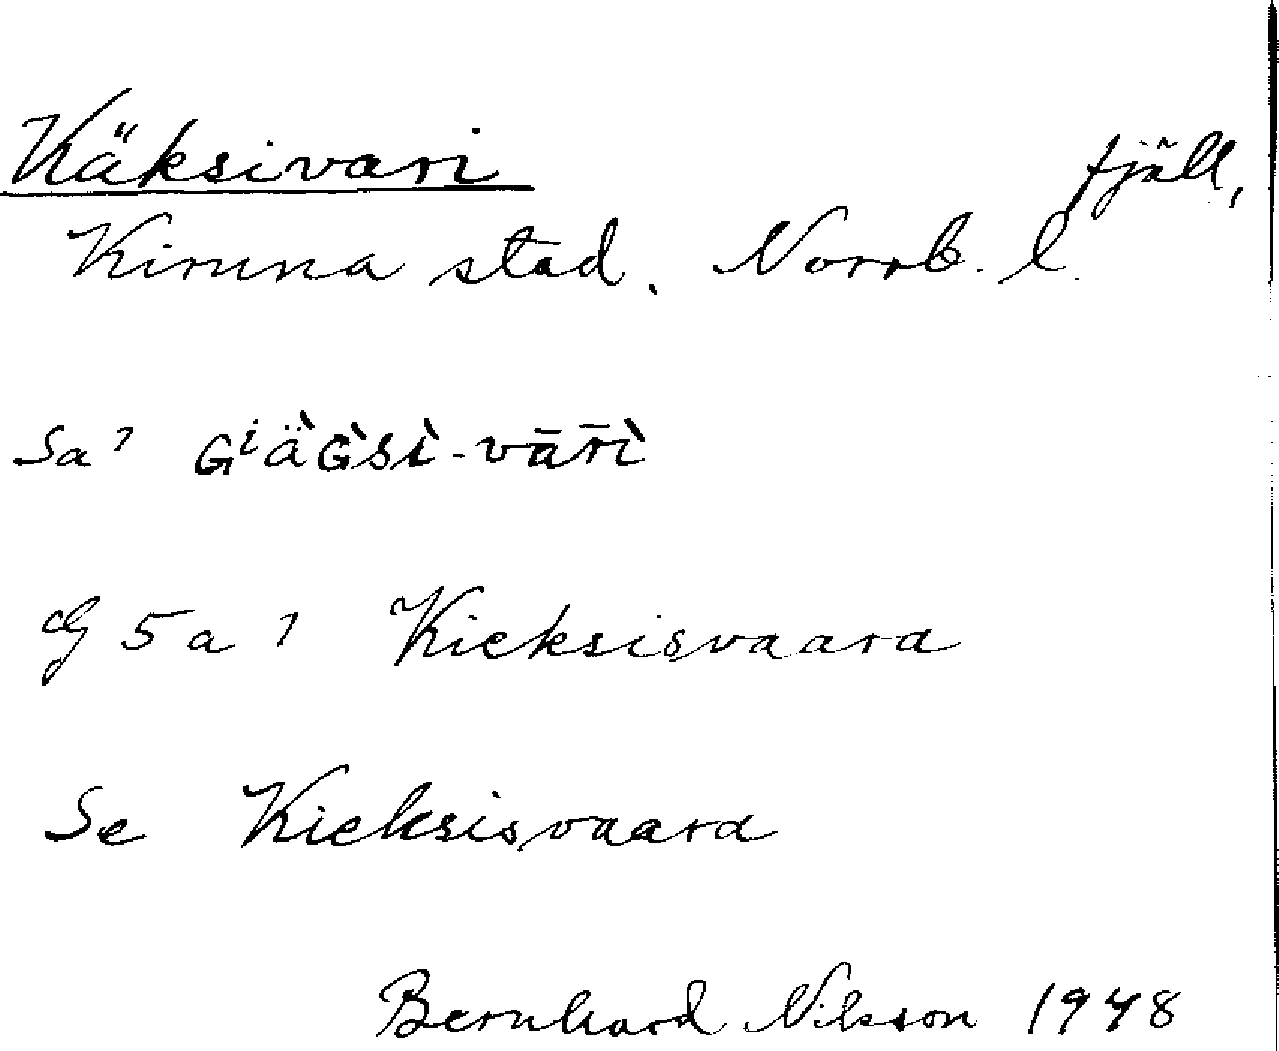 Käksivari fjäll,
Kiruna stad. Norrb. l.
Sa? Gⁱä̀G̀sì-vār̄ì
G 5 a? Kieksisvaara
Se Kieksisvaara
Bernhard Nilsson 1948